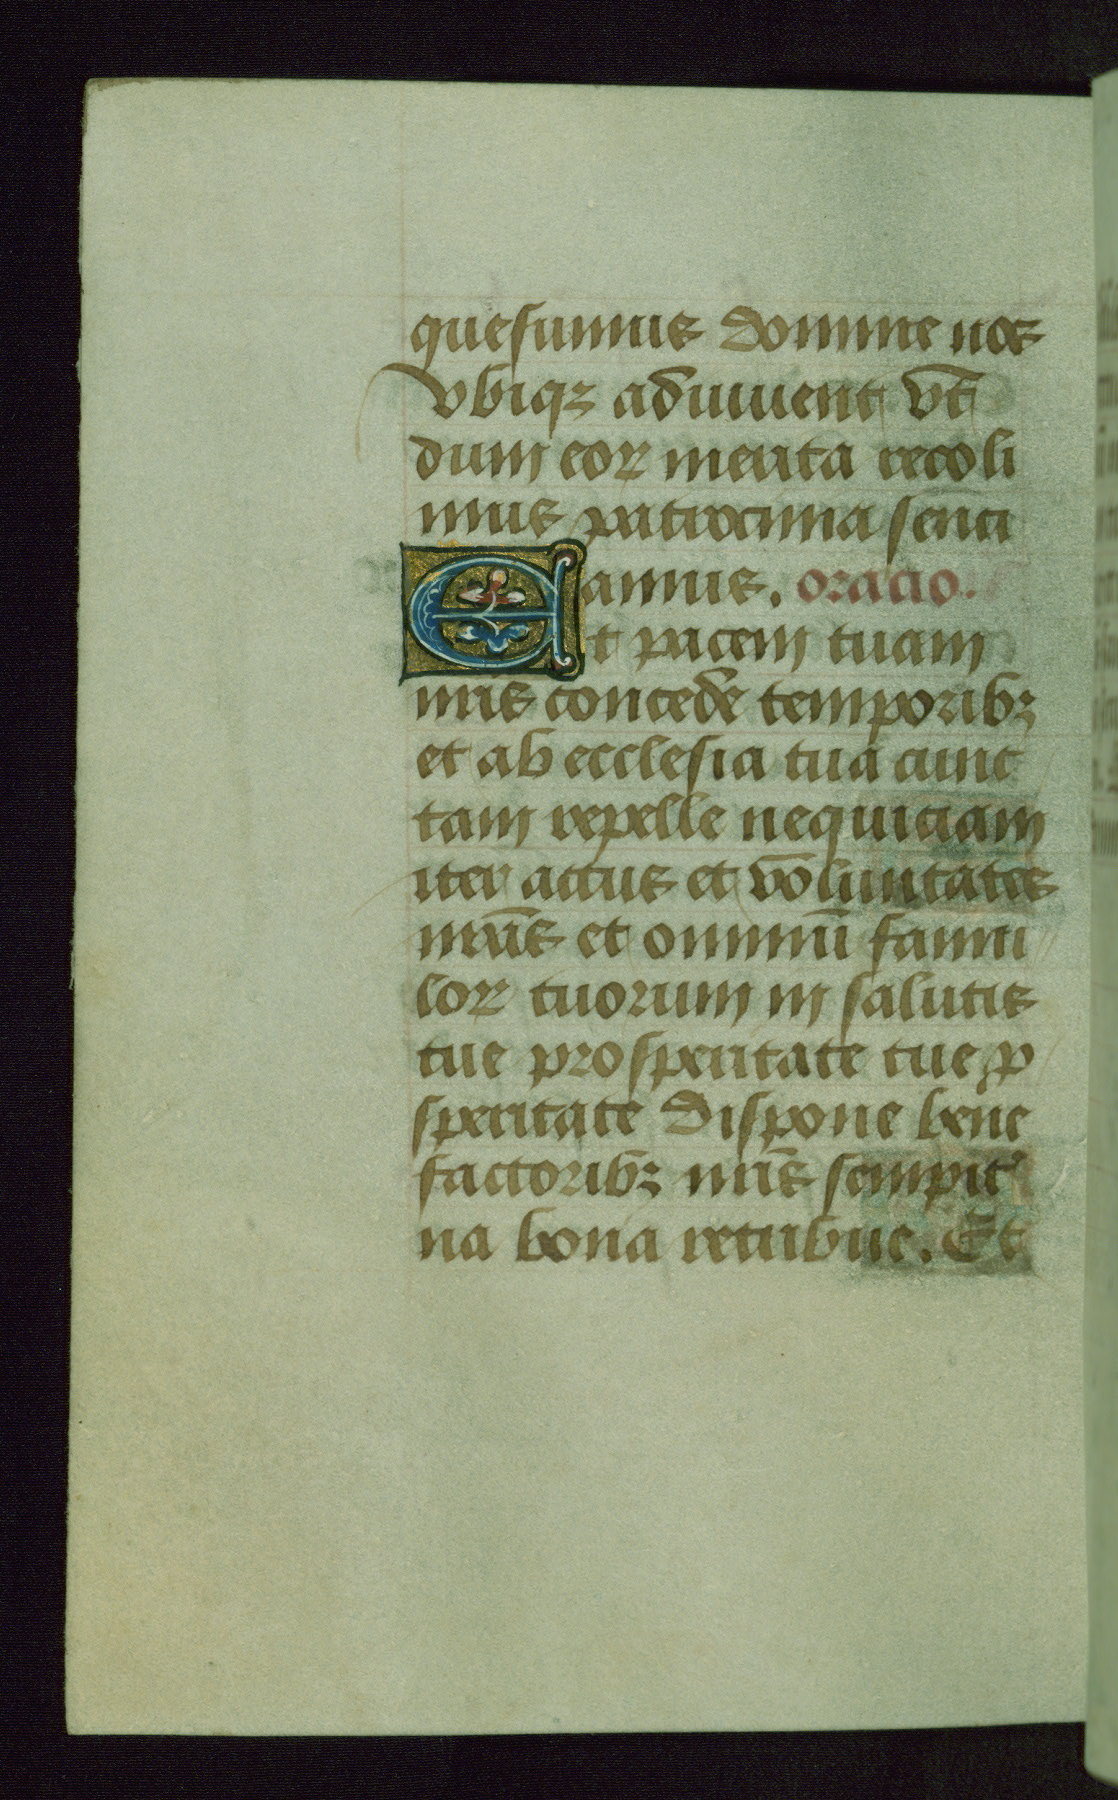 quesumus domine nos
vbiqz adiuuent vt̄
dum eoꝝ merita recoli
mus patrocinia senci
amus. oracio.
Et pacem tuam
nr̄is concede temporibz
et ab ecclesia tua cunc
tam repelle nequiciam
iter actus et vōluntates
nr̄as et omniū famu
loꝝ tuorum in salutis
tue prosperitate tue ꝓ
speritate dispone bene
factoribz nr̄is sempit᾽
na bona retribue. Et